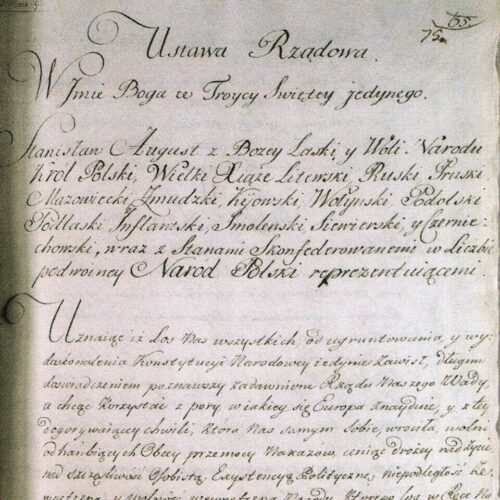 65.
75.
Ustawa Rządowa.
W Jmie Boga w Troycy Swiętey jedynego.
Stanisław August z Bozey Łaski, y Woli Narodu
Krol Polski, Wielki Xiąże Litewski, Ruski, Pruski
Mazowiecki, Zmudzki, Kijowski, Wołynski, Podolski
Podlaski, Inflantski, Smolenski, Siewierski, y Czernie-
chowski, wraz z Stanami Skonfederowanemi w Liczbie
podwoiney Narod Polski reprezentuiącemi.
Uznaiąc iż Los Nas wszystkich, od ugruntowania, y wy-
doskonalenia Konstytucyi Narodowey iedynie zawisł, długim
doswiadczeniem poznawszy zadawnione Rządu Naszego Wady,
a chcąc korzystać z pory w iakiey się Europa znayduie, y z tey
dogorywaiącey chwili, ktora Nas samym Sobie wrociła, wolni
od hanbiących Obcey przemocy Nakazow, ceniąc drożey nad życie
nad szczęsliwość Osobistą, Exystencyą Polityczną, niepodległość Ze-
wnętrzną, y wolność wewnętrzną Narodu